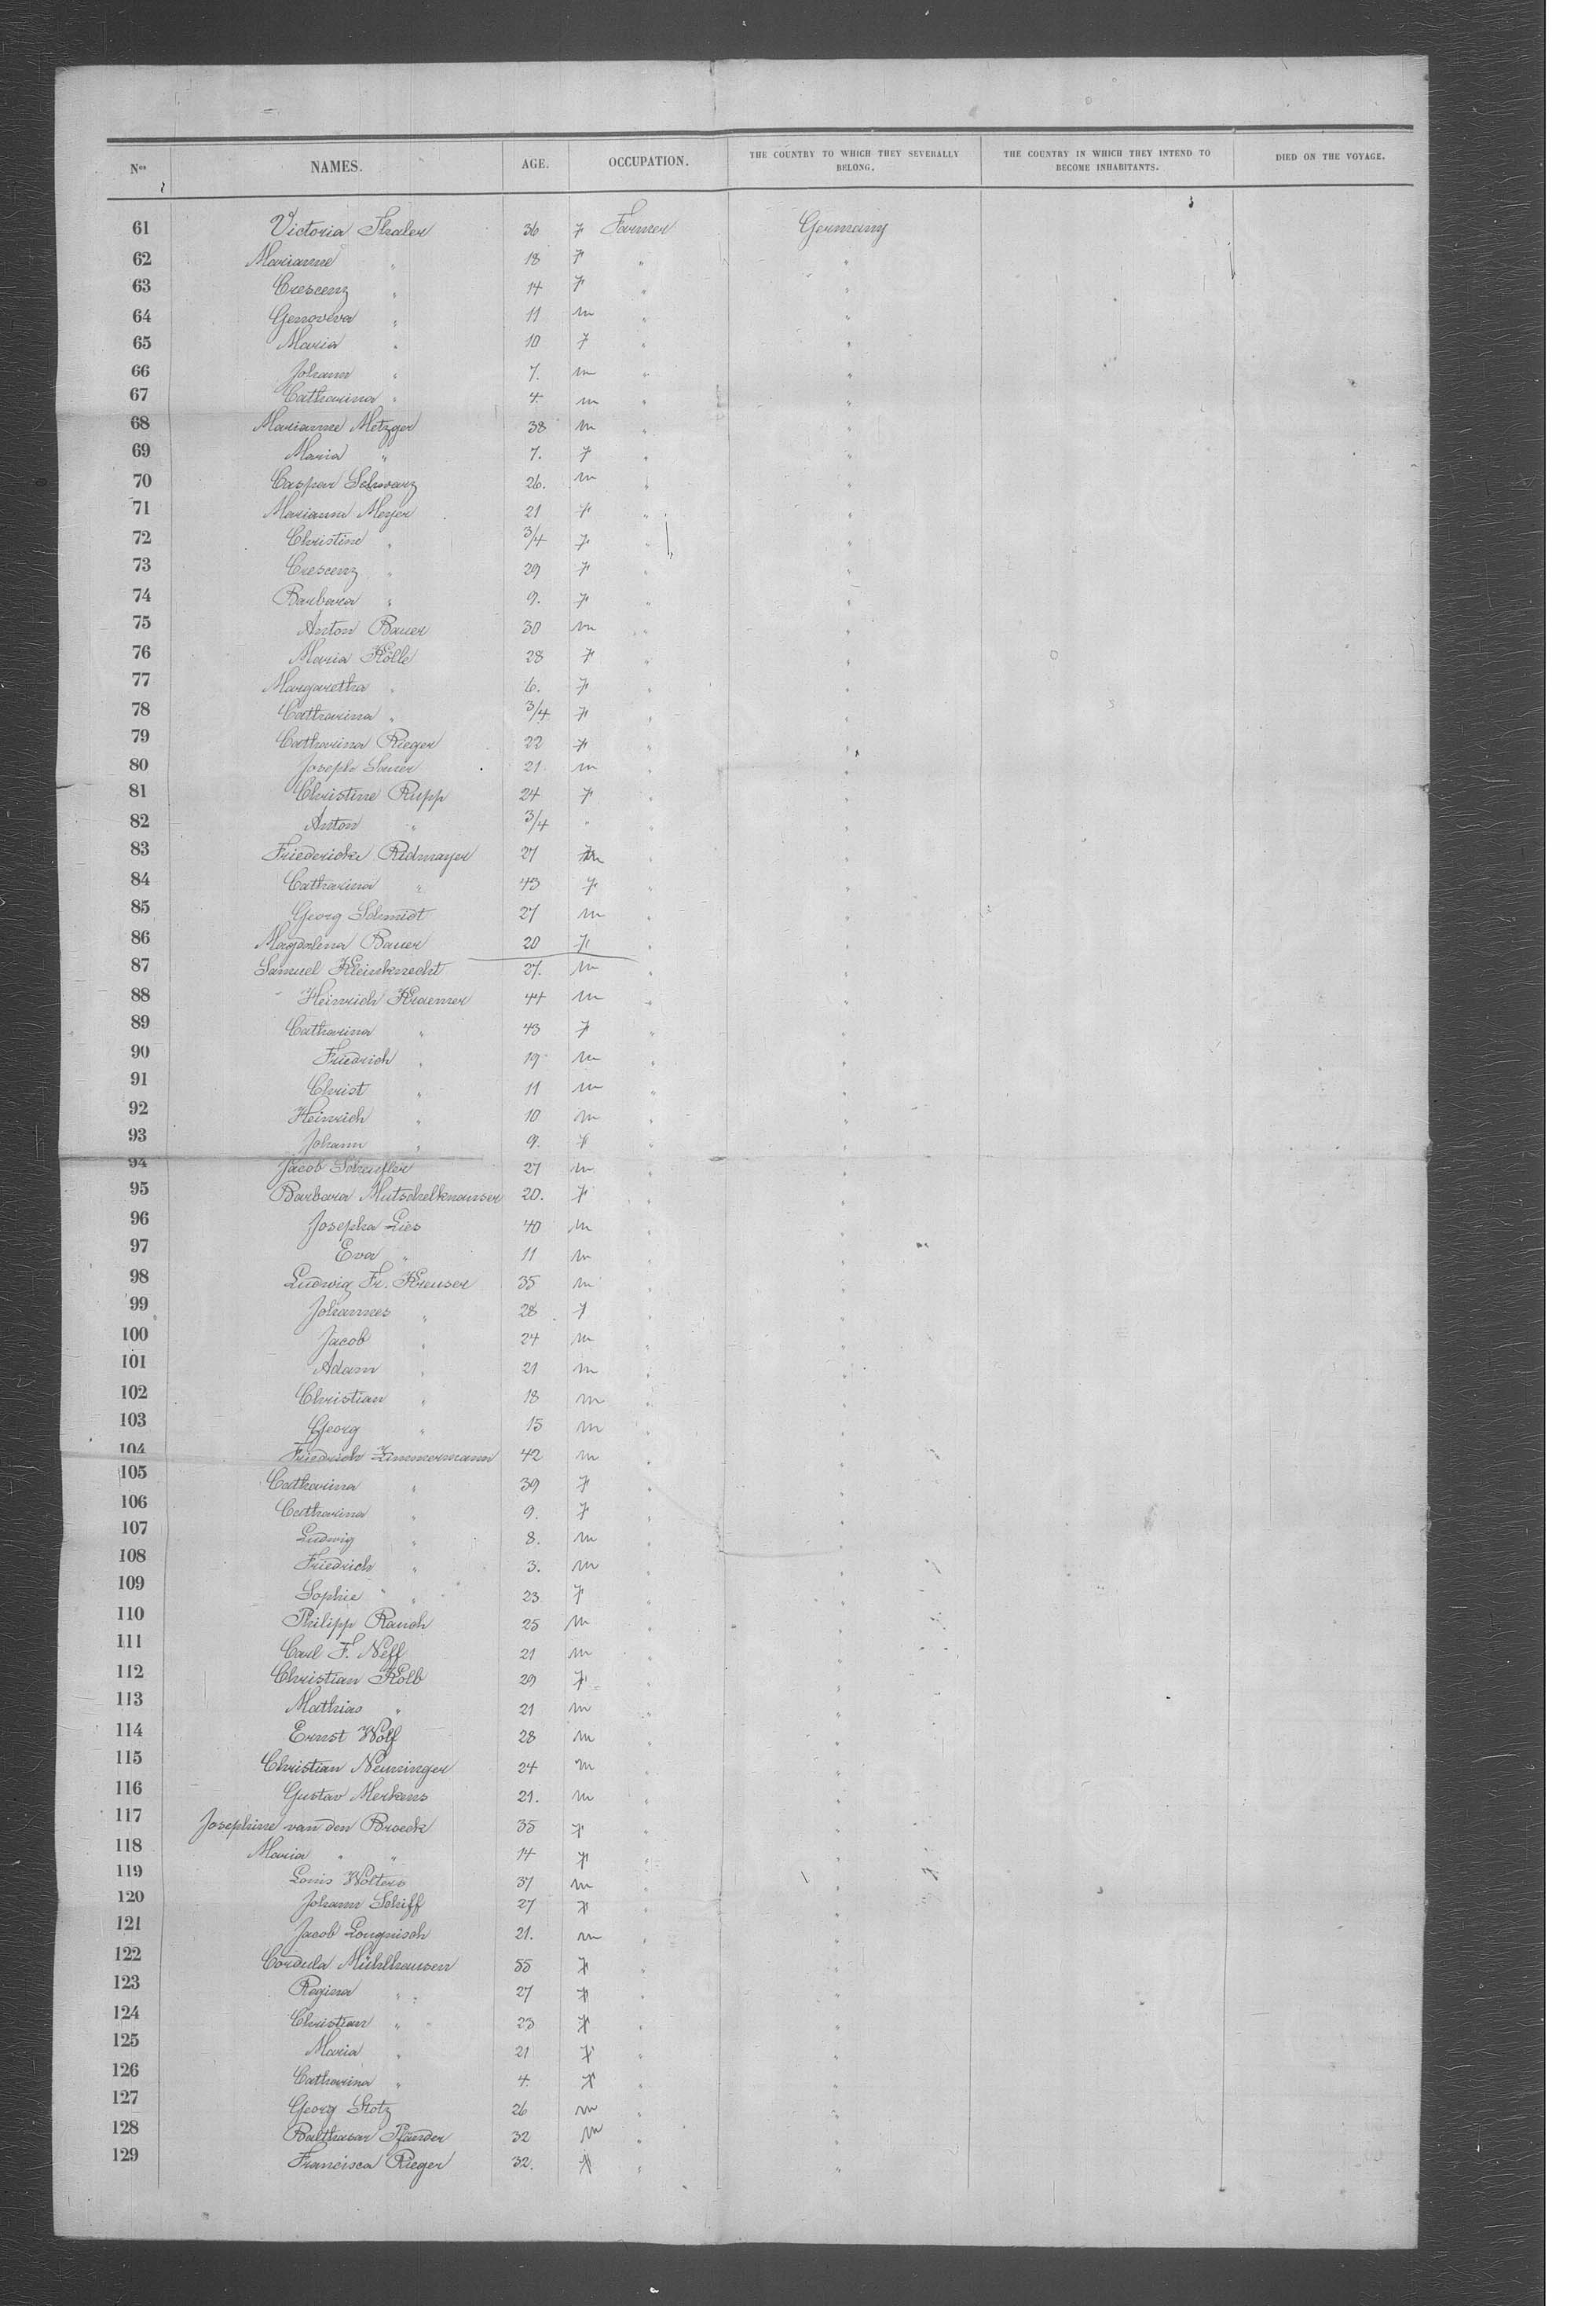 Nos NAMES. AGE. OCCUPATION. THE COUNTRY TO WHICH THEY SEVERALLY BELONG. THE COUNTRY IN WHICH THEY INTEND TO BECOME INHABITANTS. DIED ON THE VOYAGE.
61 Victoria Thaler 36 f Farmer Germany
62 Marianne " 18 f " "
63 Crescenz " 14 f " "
64 Genoveva " 11 m " "
65 Maria " 10 f " "
66 Johann " 7. m " "
67 Catharina " 4. m " "
68 Marianne Metzger 38 m " "
69 Maria " 7. f " "
70 Caspar Schwarz 26. m " "
71 Mariann Meyer 21 f " "
72 Christine " 3/4 f " "
73 Crescenz " 29 f " "
74 Barbara " 9. f " "
75 Anton Bauer 30 m " "
76 Maria Kölle 28 f " "
77 Margaretha " 6. f " "
78 Catharina " 3/4 f " "
79 Catharina Rieger 22 f " "
80 Joseph Sauer 21 m " "
81 Christine Rupp 24 f " "
82 Anton " 3/4 " " "
83 Friedericke Ridmayer 27 m " "
84 Catharina " 43 f " "
85 Georg Schmidt 27 m " "
86 Magdalena Bauer 20 f " "
87 Samuel Kleinknecht 27. m " "
88 Heinrich Kraemer 44 m " "
89 Catharina " 43 f " "
90 Friedrich " 19 m " "
91 Christ " 11 m " "
92 Heinrich " 10 m " "
93 Johann " 9. f " "
94 Jacob Scheufler 27 m " "
95 Barbara Mutschelknauser 20. f " "
96 Josepha Lies 40 m " "
97 Eva " 11 m " "
98 Ludwig Fr. Kreuser 35 m " "
99 Johannes " 28 f " "
100 Jacob " 24 m " "
101 Adam " 21 m " "
102 Christian " 18 m " "
103 Georg " 15 m " "
104 Friedrich Zimmermann 42 m " "
105 Catharina " 39 f " "
106 Catharina " 9. f " "
107 Ludwig " 8. m " "
108 Friedrich " 3. m " "
109 Sophie " 23 f " "
110 Philipp Rauch 25 m " "
111 Carl F. Neff 21 m " "
112 Christian Kolb 29 f " "
113 Mathias " 21 m " "
114 Ernst Wolf 28 m " "
115 Christian Neuninger 24 m " "
116 Gustav Merkens 21. m " "
117 Josephine van den Broeck 35 f " "
118 Maria " " 14 f " "
119 Louis Wolters 37 m " "
120 Johann Schiff 27 f " "
121 Jacob 21. m " "
122 Cordula Mühlhausen 55 f " "
123 Regina " 27 f " "
124 Christian " 23 f " "
125 Maria " 21 f " "
126 Catharina " 4. f " "
127 Georg Stotz 26 m " "
128 Balthasar Pfander 32 m " "
129 Francisca Rieger 32. f " "